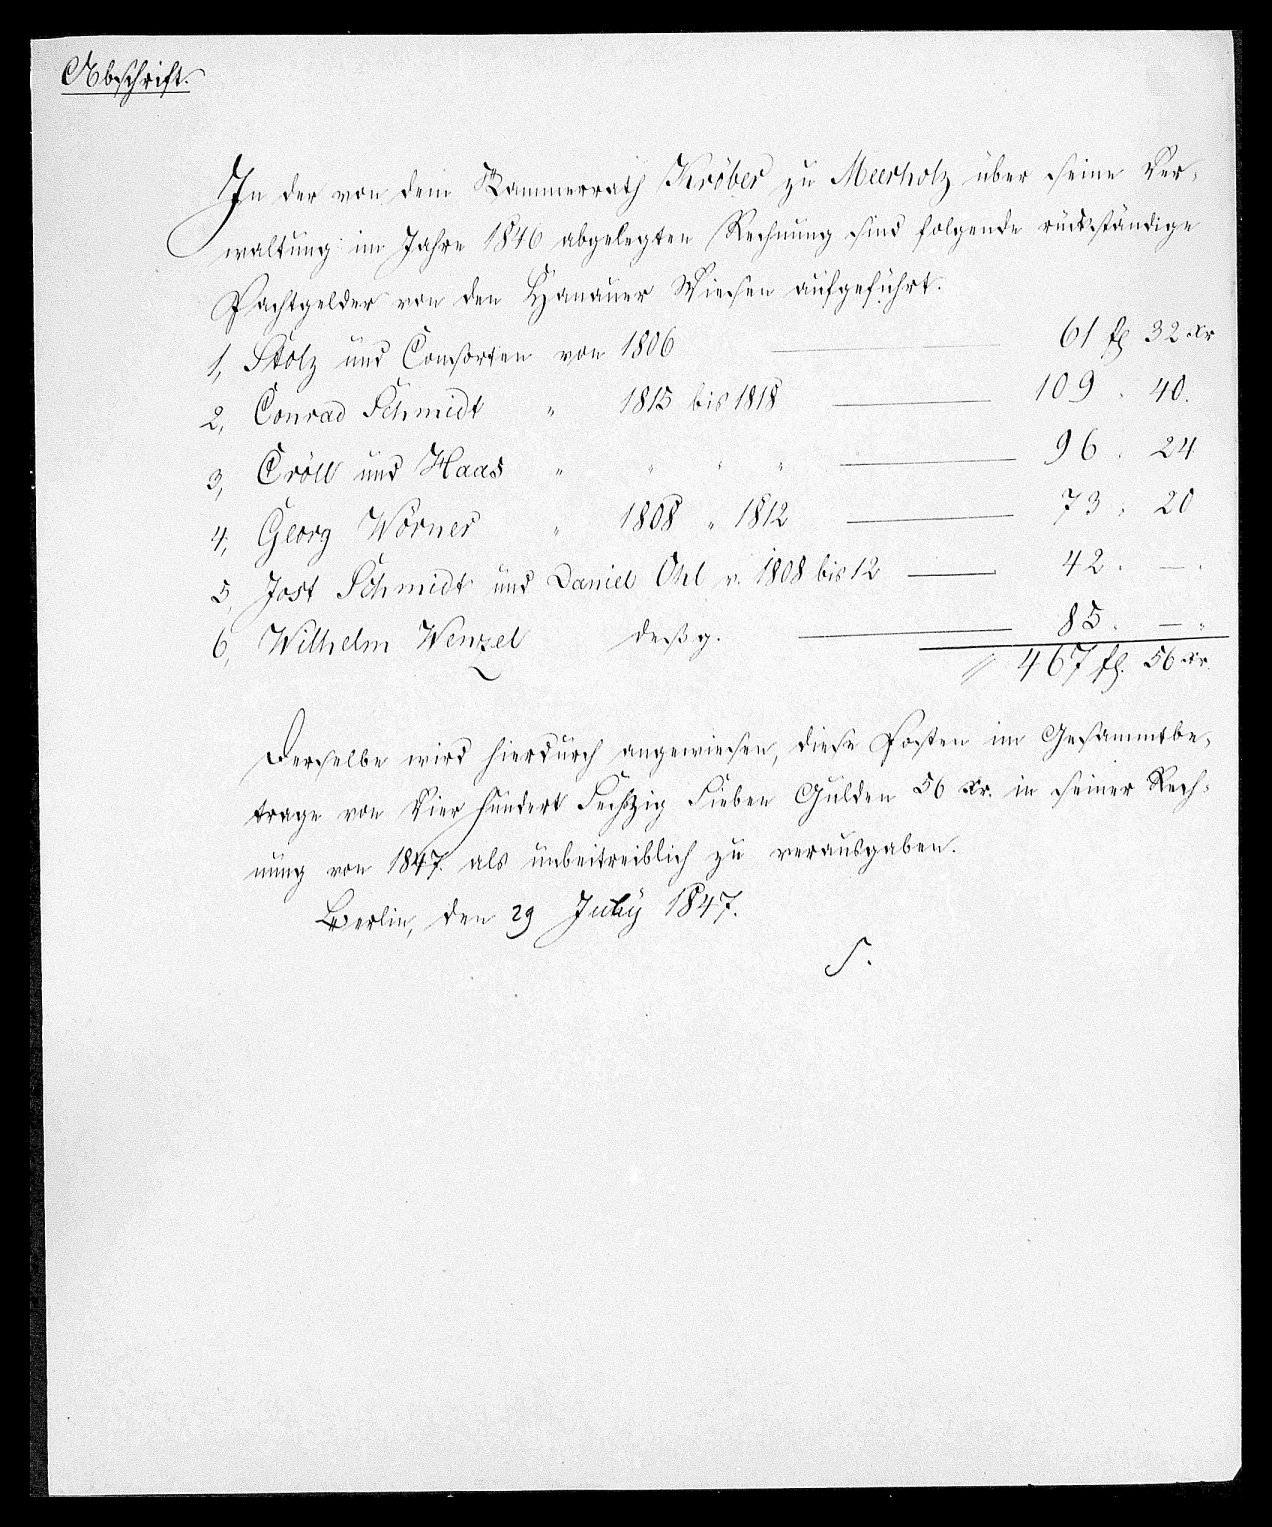 Abschrift.
In der von dem Kammerrath Kröber zu Meerholz über seine Ver-
waltung im Jahre 1846 abgelegten Rechnung sind folgende rückständige
Pachtgelder von den Hanauer Wiesen aufgeführt.
1, Stolz und Consorten von 1806 61 fl 32 Xr
2, Conrad Schmidt " 1815 bis 1818 109 . 40.
3, Cröll und Haas " " " " 96 . 24
4, Georg Wörner " 1808 " 1812 73 . 20
5, Jost Schmidt und Daniel Ohl v. 1808 bis 12 42 . — .
6, Wilhelm Wenzel desgl. 85 . — .
467 fl. 56 Xr.
Derselbe wird hierdurch angewiesen, diese Posten im Gesammtbe-
trage von Vier hundert Sechzig Sieben Gulden 56 Xr. in seiner Rech-
nung von 1847. als unbeitreiblich zu verausgaben.
Berlin, den 29 July 1847.
S.